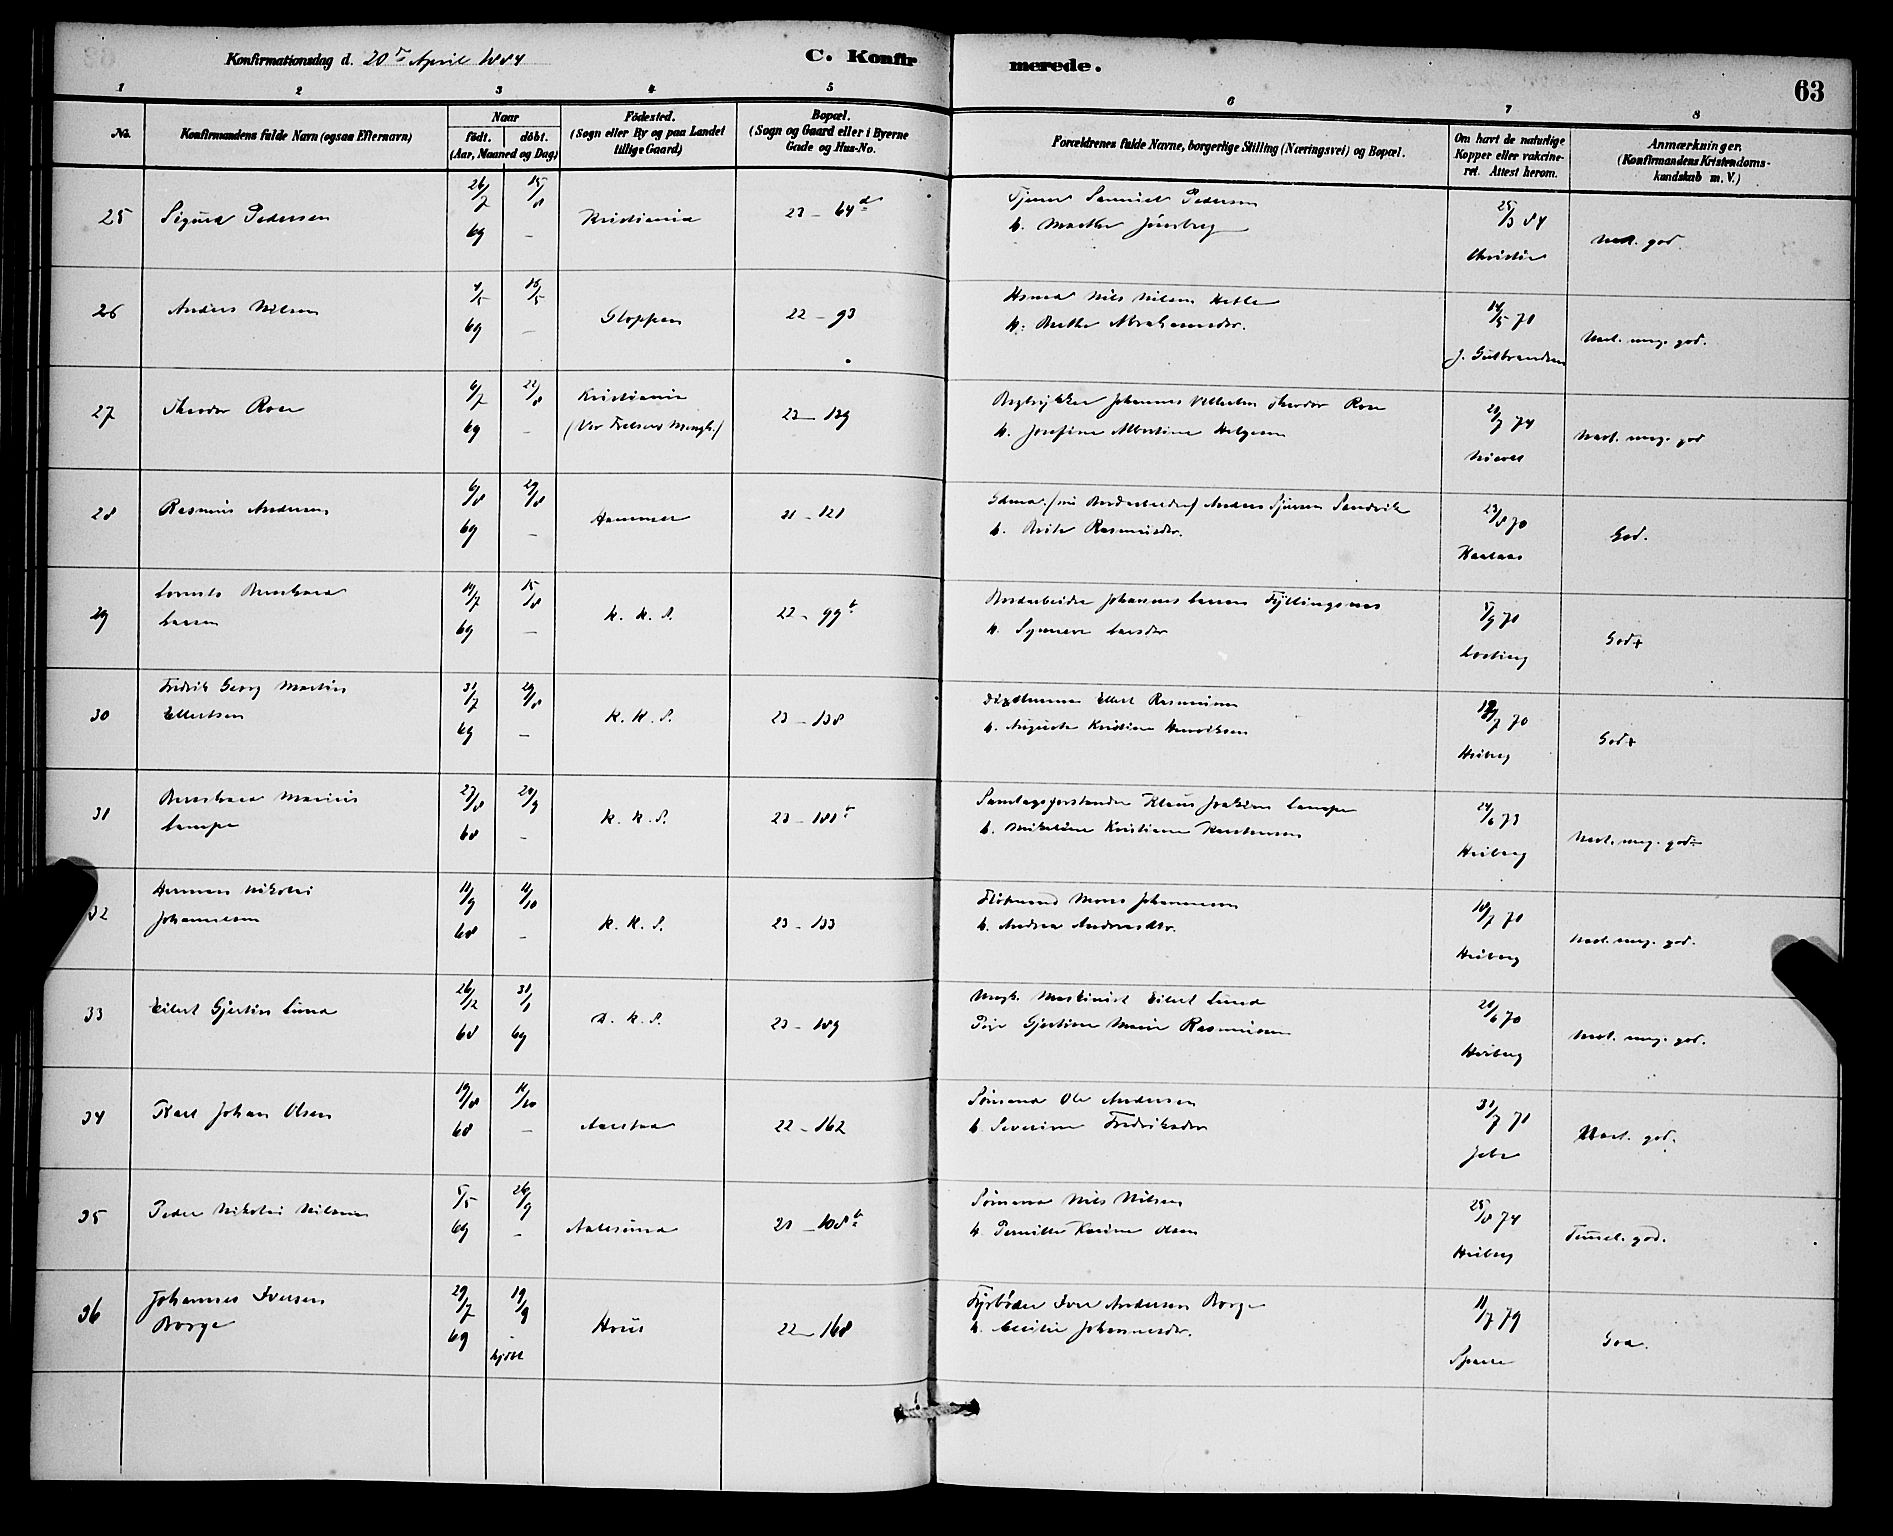 Konfirmationsdag d. 20de April 1884
C. Konfirmerede.
63
1 2 3 4 5 6 7 8
No.
Konfirmandens fulde Navn (ogsaa Efternavn)
Naar
födt. döbt.
(Aar, Maaned og Dag)
Födested.
(Sogn eller By og paa Landet
tillige Gaard)
Bopæl.
(Sogn og Gaard eller i Byerne
Gade og Hus-No.
Forældrenes fulde Navne, borgerlige Stilling (Næringsvei) og Bopæl.
Om havt de naturlige
Kopper eller vakcine-
ret. Attest herom.
Anmærkninger.
(Konfirmandens Kristendoms-
kundskab m. V.)
25 Sigurd Pedersen 26/7 69 15/8 – Kristiania 23 – 64d
Tjener Samuel Pedersen
h. Marthe
25/3 84
Christie
Meg. god.
26 Anders Nilsen 4/5 69 16/5 – Gloppen 22 – 93
Nils Nilsen Hetle
h. Berthe Abrahamsdtr.
14/5 70
J. Gulbrandsen
Next. meg. god.
27 Theodor Rose 6/7 69 22/8 – Kristiania
(Vor Frelsers Mengh.) 23 – 139
Bogtrykker Johannes Vilhelm Theodor Rose
h. Josefine Albertine Helgesen
74
Next. meg. god
28 Rasmus Andersen 6/8 69 29/8 – Hammer 21 – 121
Anders Sjursen Sandvik
h. Brite Rasmusdtr.
23/8 70
God.
29 Bernhard
Larsen 15/8 69 – K. K. S. 22 – 99b
Bordarbeider Johannes Larsen Fyllingsnes
h. Synneve Larsdtr
70
God+
30 Fredrik Georg Martin
Ellertsen 31/7 69 29/8 – K. K. S. 23 – 138
Ellert Rasmussen
h. Augusta Kristine Henriksen
70
Heiberg
God+
31 Bernhard Marius
Lampe 27/8 68 20/9 – K. K. S. 23 – 181b
Samlagsforstander Klaus Joakim Lampe
h. Mikaline Kristiane Karstensen
24/6 73
Heiberg
Next. meg. god
32 Herman Nikolai
Johannesen 11/9 68 11/10 – K. K. S. 23 – 133
Flötmand Mons Johannesen
h. Andrea Andreasdtr.
18/7 70
Heiberg
Next. meg. god.
33 Eilert Gjertin Lund 26/12 68 31/1 69 D. K. S. 23 – 189
Ungk. Maskinist Eilert Lund
Pige Gjertine Marie Rasmussen
21/6 70
Heiberg
Next. meg. god.
34 Karl Johan Olsen 19/8 68 11/10 – Aarstad 22 – 162
Sömand Ole Andersen
h. Severine Fredriksdtr
31/7 70
Jebe
Next. god.
35 Peder Nikolai Nilsen 5/5 69 26/9 – Aalesund 21 – 108b
Sömand Nils Nilsen
h. Pernille Karine Olsen
25/8 74
Heiberg
Temmel. god.
36 Johannes Iversen
Borge 29/7 69 19/9 – hjdöbt Hous 22 – 168
Fyrböder Iver Andersen Borge
h. Cecilie Johannesdtr.
11/7 79
Sparre
God.